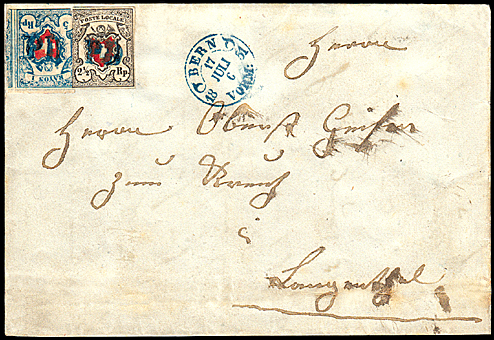 5 Rp
RAYON I
POSTE LOCALE
2½ Rp.
BERN
17
JULI
6
18 51
VORM.
Herrn
Herrn Oberst Geiser
zum Kreuz
Langenthal